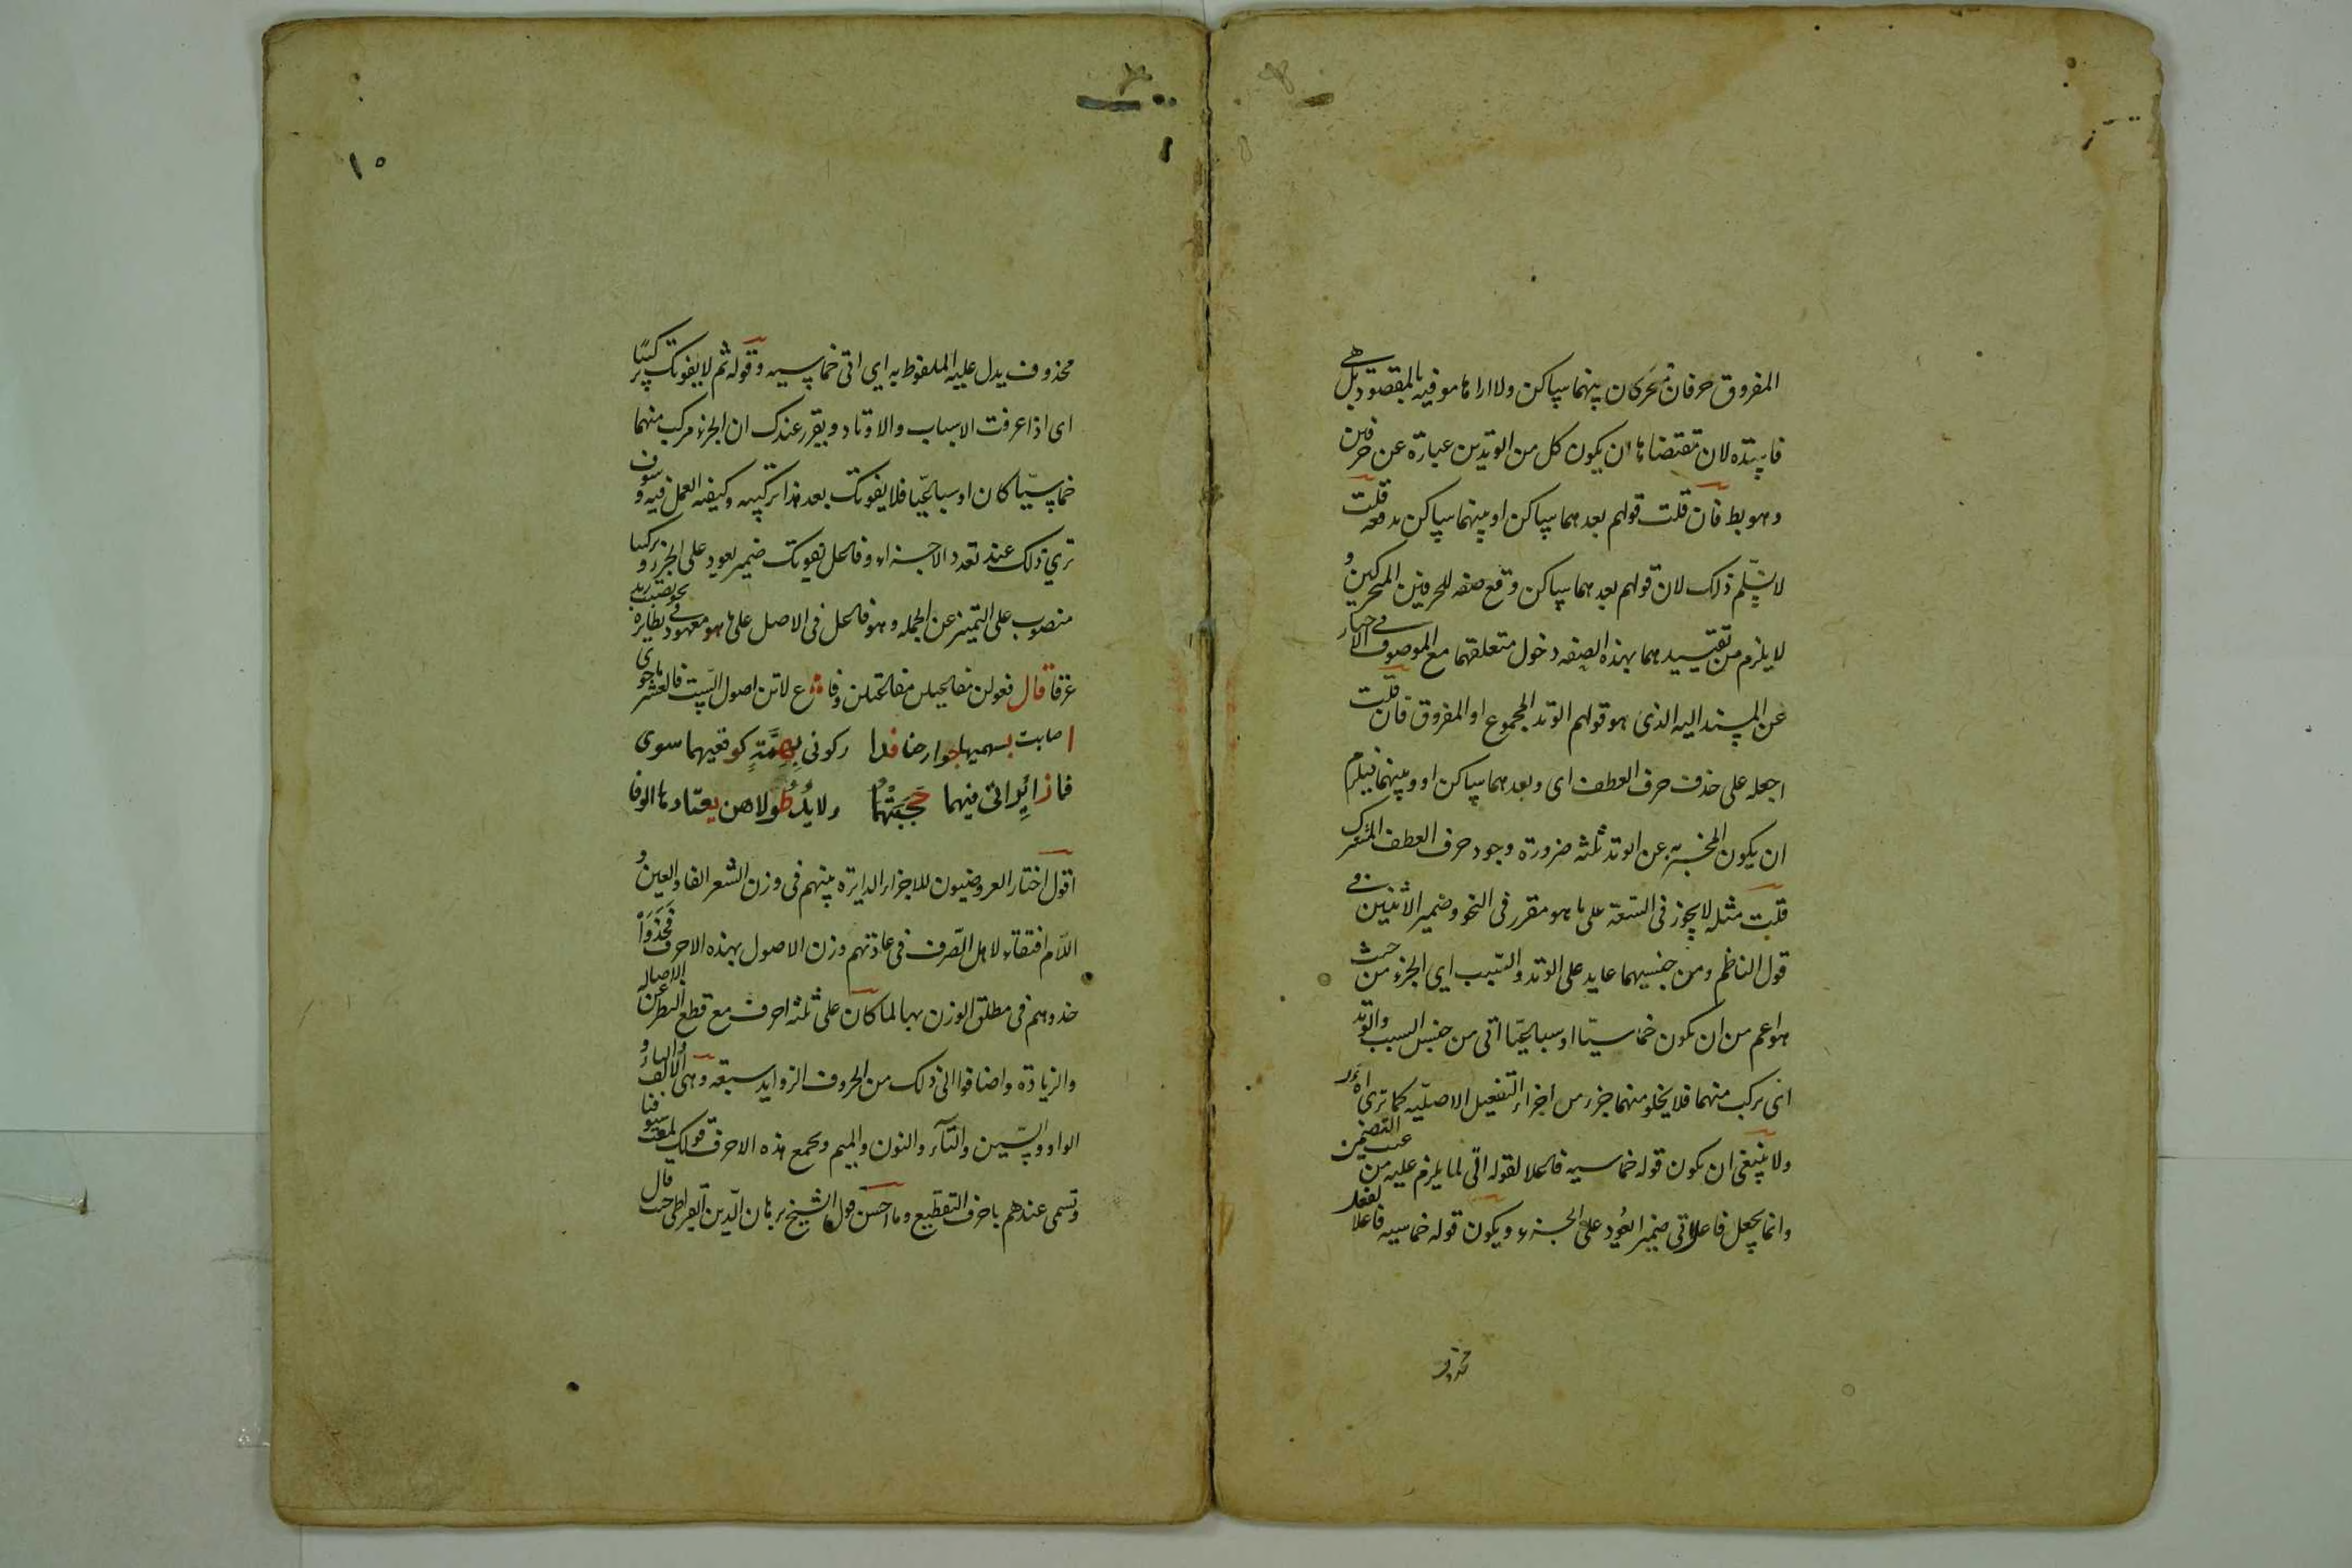 المفروق حرفان متحركان بينهما ساكن ولا اراها موفيه بالمقصود بل هي
فاسدة لان مقتضاها ان يكون كل من الوتدين عبارة عن حرفين
وهو بط فان قلت قولهم بعدهما ساكن او بينهما ساكن يدفعه قلت
لا نسلم ذلك لان قولهم بعدهما ساكن وقع صفه للحرفين المتحركين و
لا يلزم من تقييدهما بهذه الصفه دخول متعلقهما مع الموصوف في الاخبار
عن المسند اليه الذى هو قولهم الوتد المجموع او المفروق فان قلت
اجعله على حذف حرف العطف اى وبعدهما ساكن او وبينهما فيلزم
ان يكون المخبر به عن الوتد ثلثه ضرورة وجود حرف العطف المشرك
قلت مثله لا يجوز فى السعة على ما هو مقرر فى النحو وضمير الاثنين في
قول الناظم ومن جنسيهما عايد على الوتد والسبب اي الجزء من حيث
هو اعم من ان يكون خماسيا او سباعيا اتى من جنس السبب والوتد
اى تركب منهما فلا يخلو منهما جزء من اجزاء التفعيل الاصليه كما تراه
ولا ينبغى ان يكون قوله خماسيه فاعلا لقوله اتى لما يلزم عليه من عيب التضمين
وانما يجعل فاعل اتى ضمير العود على الجزء ويكون قوله خماسيه فاعلا لفعل
محذوف
١٥
محذوف يدل عليه الملفوظ به اي اتى خماسيه وقوله ثم لا يفوتك تركيبا
اى اذا عرفت الاسباب والاوتاد وتقرر عندك ان الجزء مركب منهما
خماسيا كان او سباعيا فلا يفوتك بعد هذا تركيبه وكيفيه العمل فيه وسوف
تري ذلك عند تعدد الاجزاء وفاعل يفوتك ضمير يعود على الجزء وتركيبا
منصوب على التمييز عن الجمله وهو فاعل فى الاصل على ما هو معهود في نظايره نحو تصبب زيد
عرقا قال فعولن مفاعيلن مفاعلتن وفاع لاتن اصول الست فالعشر ما حوى
اصابت بسهميها جوارحنا فدا ركونى بهمة كوقعيهما سوى
فما زائراتى فيهما حجبتهما ولا يد طولاهن يعتادها الوفا
اقول اختار العروضيون للاجزاء الدايرة بينهم فى وزن الشعر الفاء والعين و
اللام اقتفاء لاهل الصرف فى عادتهم وزن الاصول بهذه الاحرف فحذوا
حذوهم فى مطلق الوزن بها لما كان على ثلثه احرف مع قطع النظر عن الاصاله
والزيادة واضافوا الى ذلك من الحروف الزوايد سبعة وهى الالف والياء و
الواو والسين والتاء والنون والميم ويجمع هذه الاحرف قولك لمعت سيوفنا
وتسمى عندهم باحرف التقطيع وما احسن قول الشيخ برهان الدين القيراطى حيث قال